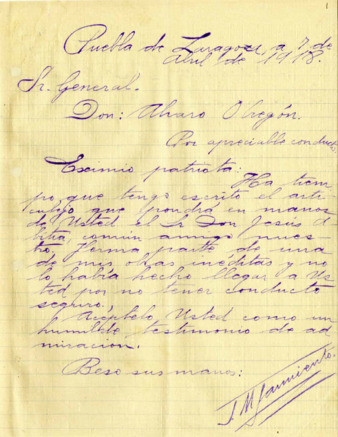 1
Puebla de Zaragoza a 7 de
Abril de 1918.
Sr. General.
Don: Alvaro Obregón.
Por apreciable conducto
Eximio patriota:
Ha tiem
po que tengo escrito el arti-
culejo que pondrá en manos
de Usted el Sr Don Jesus
común amigo nues
tro. Forma parte de una
de mis obras ineditas y no
lo había hecho llegar a Us
ted por no tener conducto
seguro,
Acéptelo Usted como un
humilde testimonio de ad
miracion.
Beso sus manos:
J. M. Sarmiento.